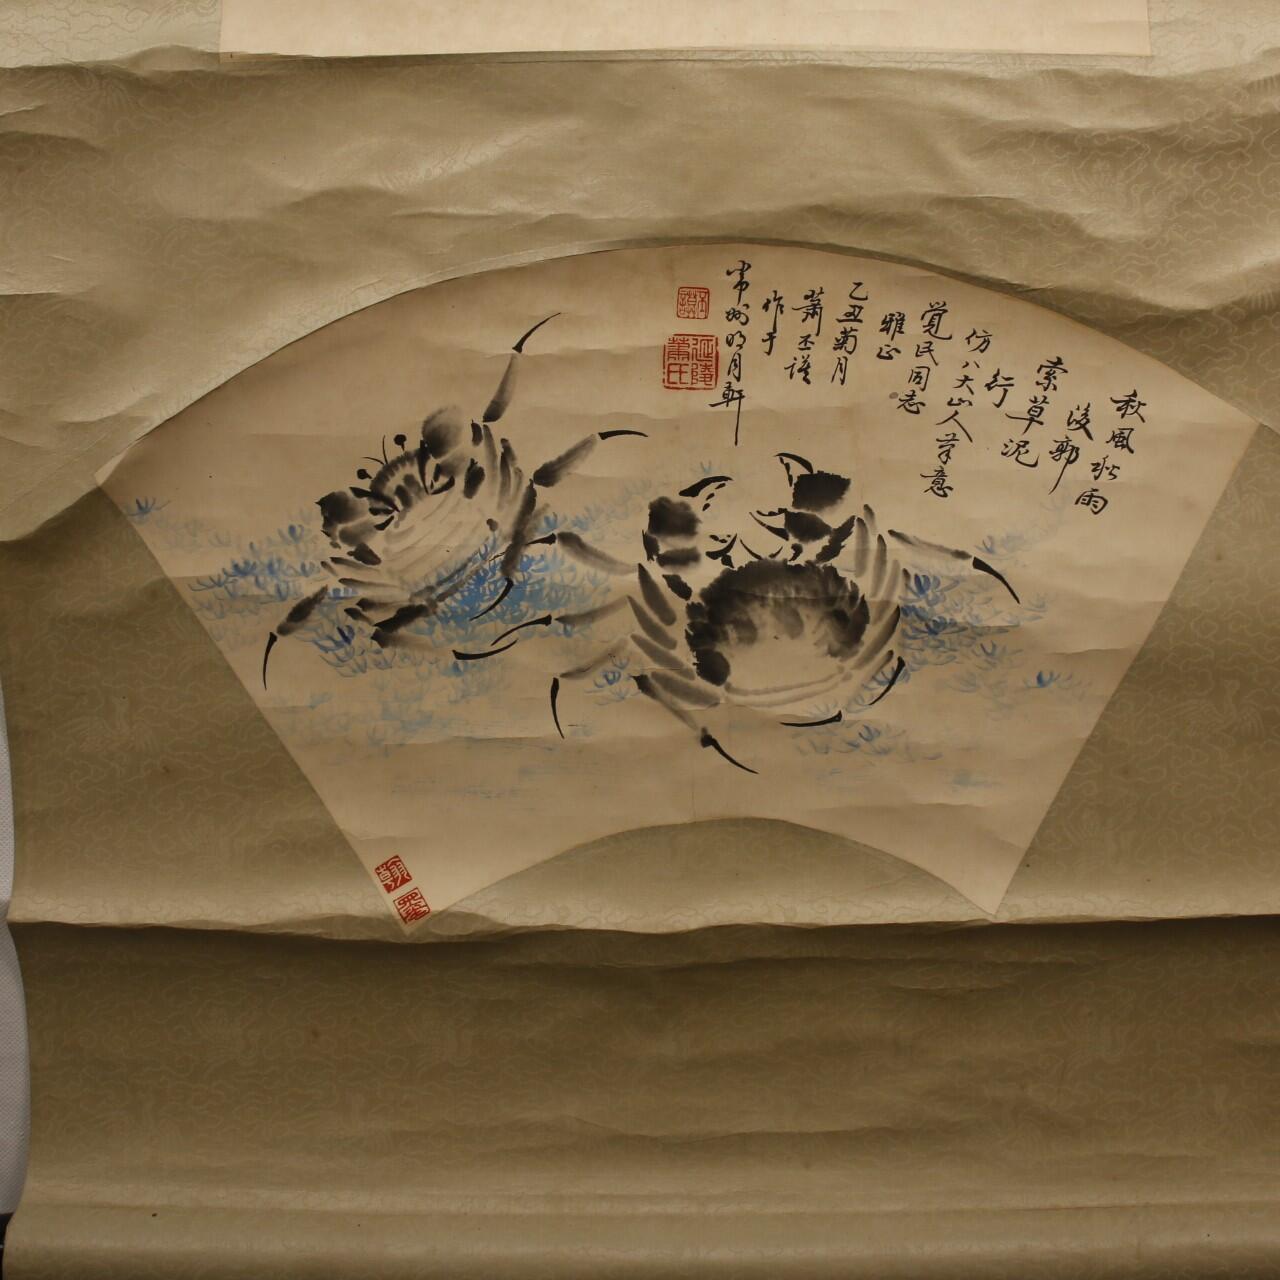 秋風秋雨
後郭
索草泥
行
仿八大山人筆意
覺民同志
雅正
乙丑菊月
蕭丕謨
作于
常州明月軒
丕謨
延陵
蕭氏